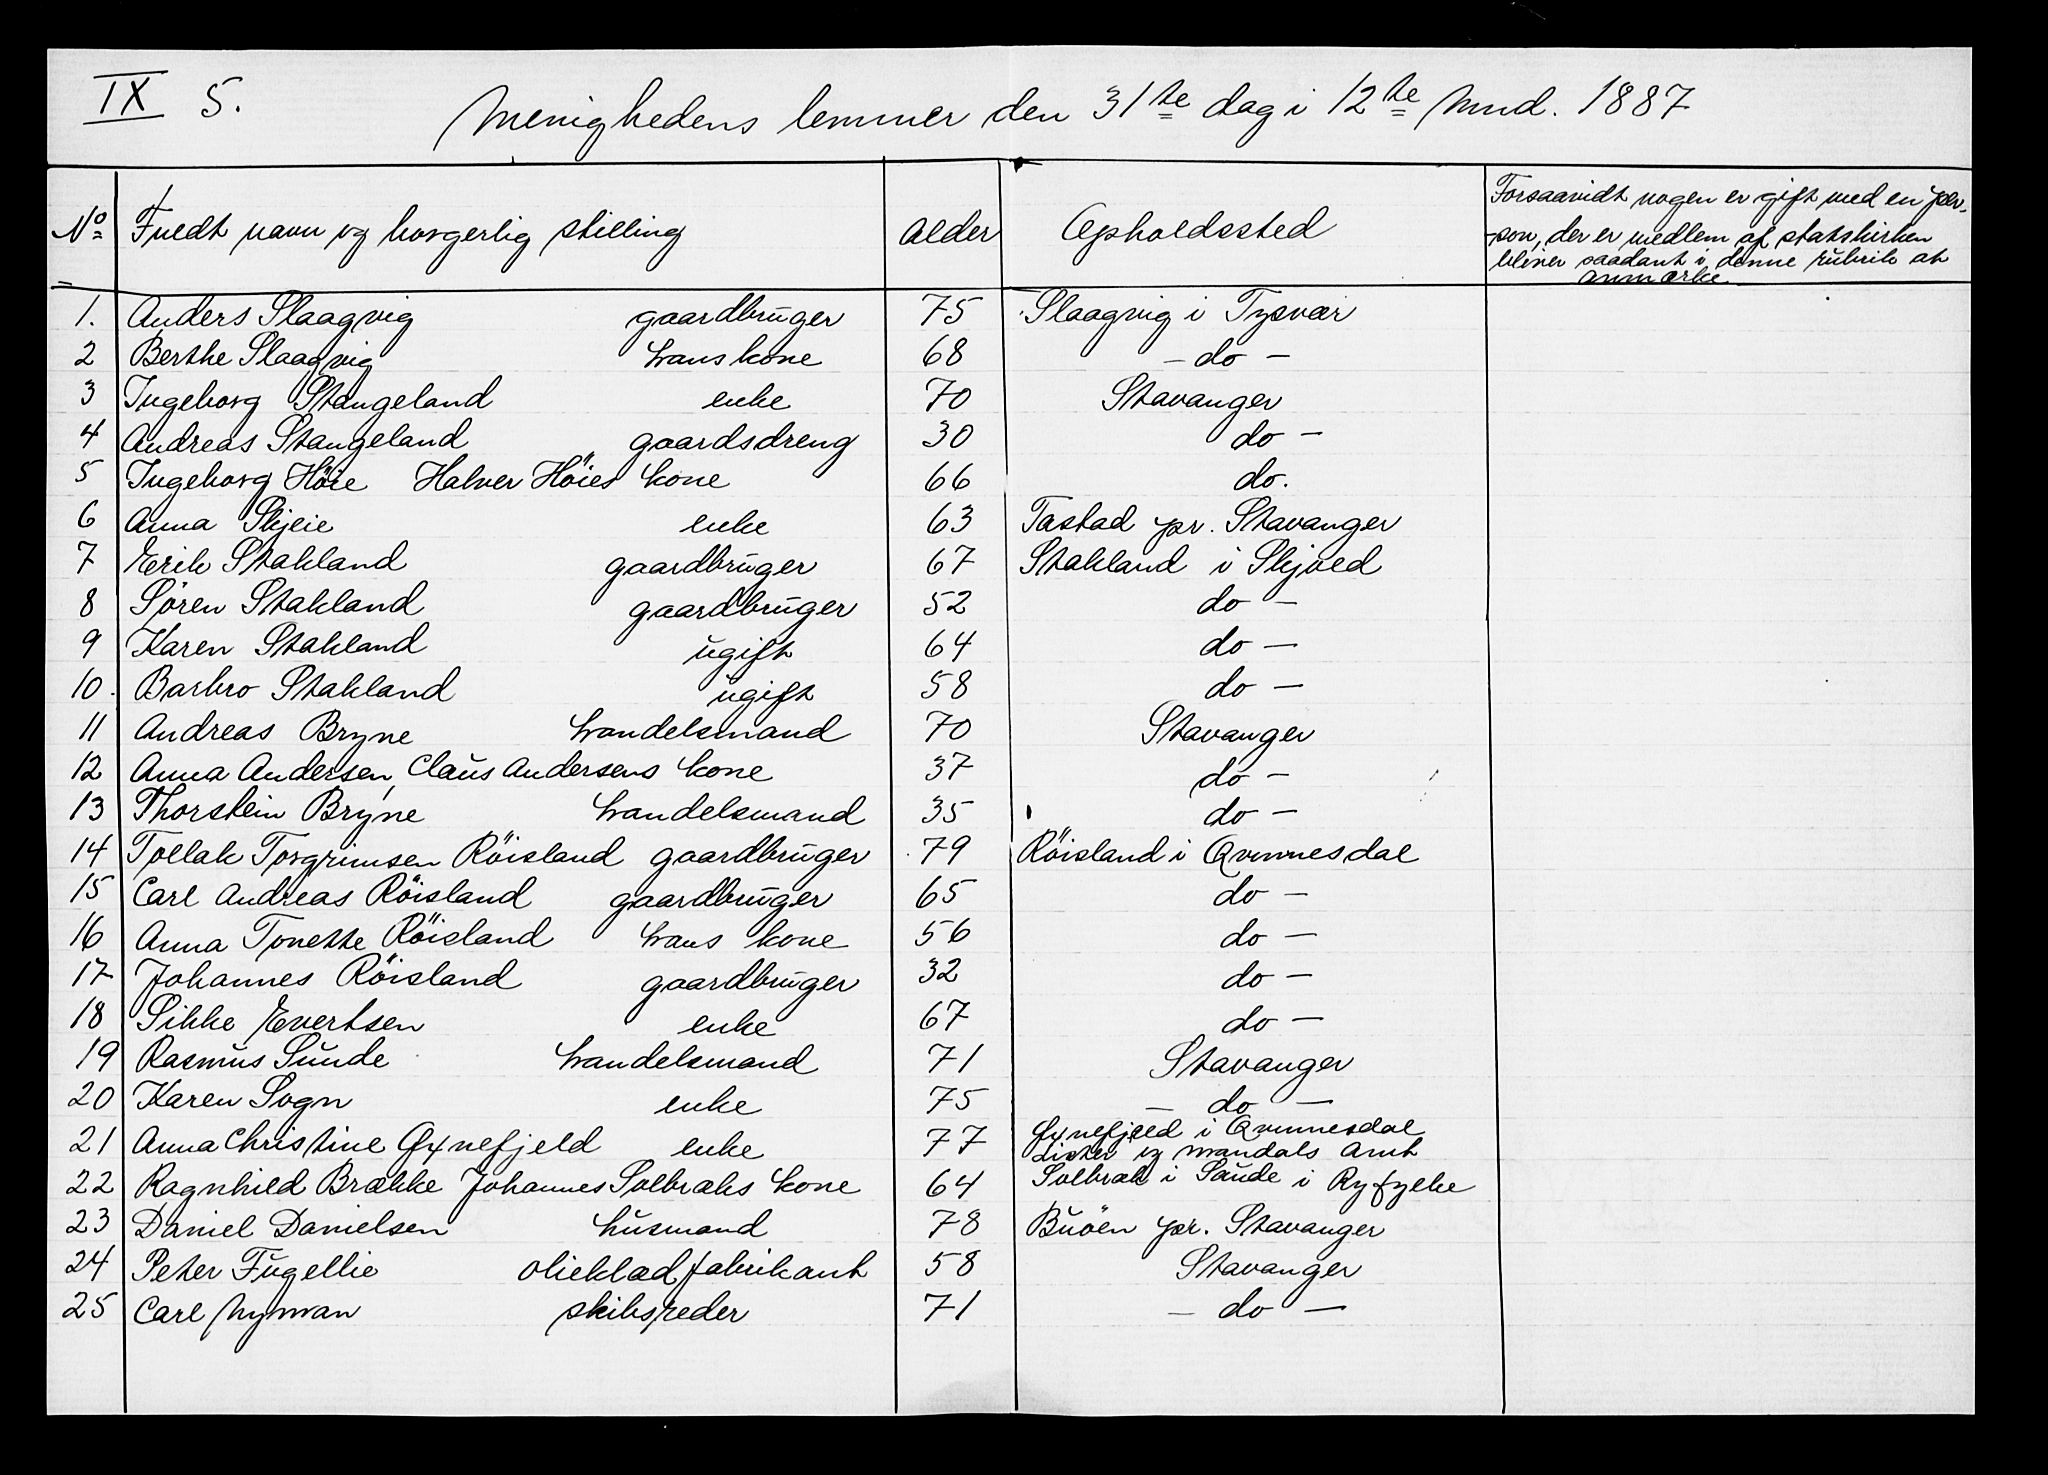 IX 5.
Menighedens lemmer den 31te dag i 12te Mnd. 1887
No Fuldt navn og borgerlig stilling Alder Opholdssted Forsaavidt nogen er gift med en per-
son, der er medlem af statskirken
bliver saadant i denne rubrik at
anmærke.
1. Anders Slaagvig gaardbruger 75 Slaagvig i Tysvær
2 Berthe Slaagvig hans kone 68 - do -
3 Ingeborg Stangeland enke 70 Stavanger
4 Andreas Stangeland gaardsdreng 30 do -
5 Ingeborg Höie Halver Höies kone 66 do.
6 Anna Skjeie enke 63 Tastad pr. Stavanger
7 Erik Stakland gaardbruger 67 Stakland i Skjold
8 Søren Stakland gaardbruger 52 do -
9 Karen Stakland ugift 64 do -
10. Barbro Stakland ugift 58 do -
11 Andreas Bryne handelsmand 70 Stavanger
12 Anna Andersen, Claus Andersens kone 37 do -
13 Thorstein Bryne handelsmand 35 do -
14 Tollak Torgrimsen Röisland gaardbruger 79 Röisland i Qvinnesdal
15 Carl Andreas Röisland gaardbruger 65 do -
16 Anna Tonette Röisland hans kone 56 do -
17 Johannes Röisland gaardbruger 32 do -
18 Sikke Evertsen enke 67 do -
19 Rasmus Sunde handelsmand 71 Stavanger
20 Karen Sogn enke 75 - do -
21 Anna Christine Gxnefjeld enke 77 Gxnefjeld i Qvinnesdal
Lister og Mandals Amt
22 Ragnhild Brække Johannes Solbraks kone 64 Solbrak i Saude i Ryfylke
23 Daniel Danielsen husmand 78 Buöen pr. Stavanger
24 Peter Fugellie olieklædfabrikant 58 Stavanger
25 Carl Nyman skibsreder 71 - do -